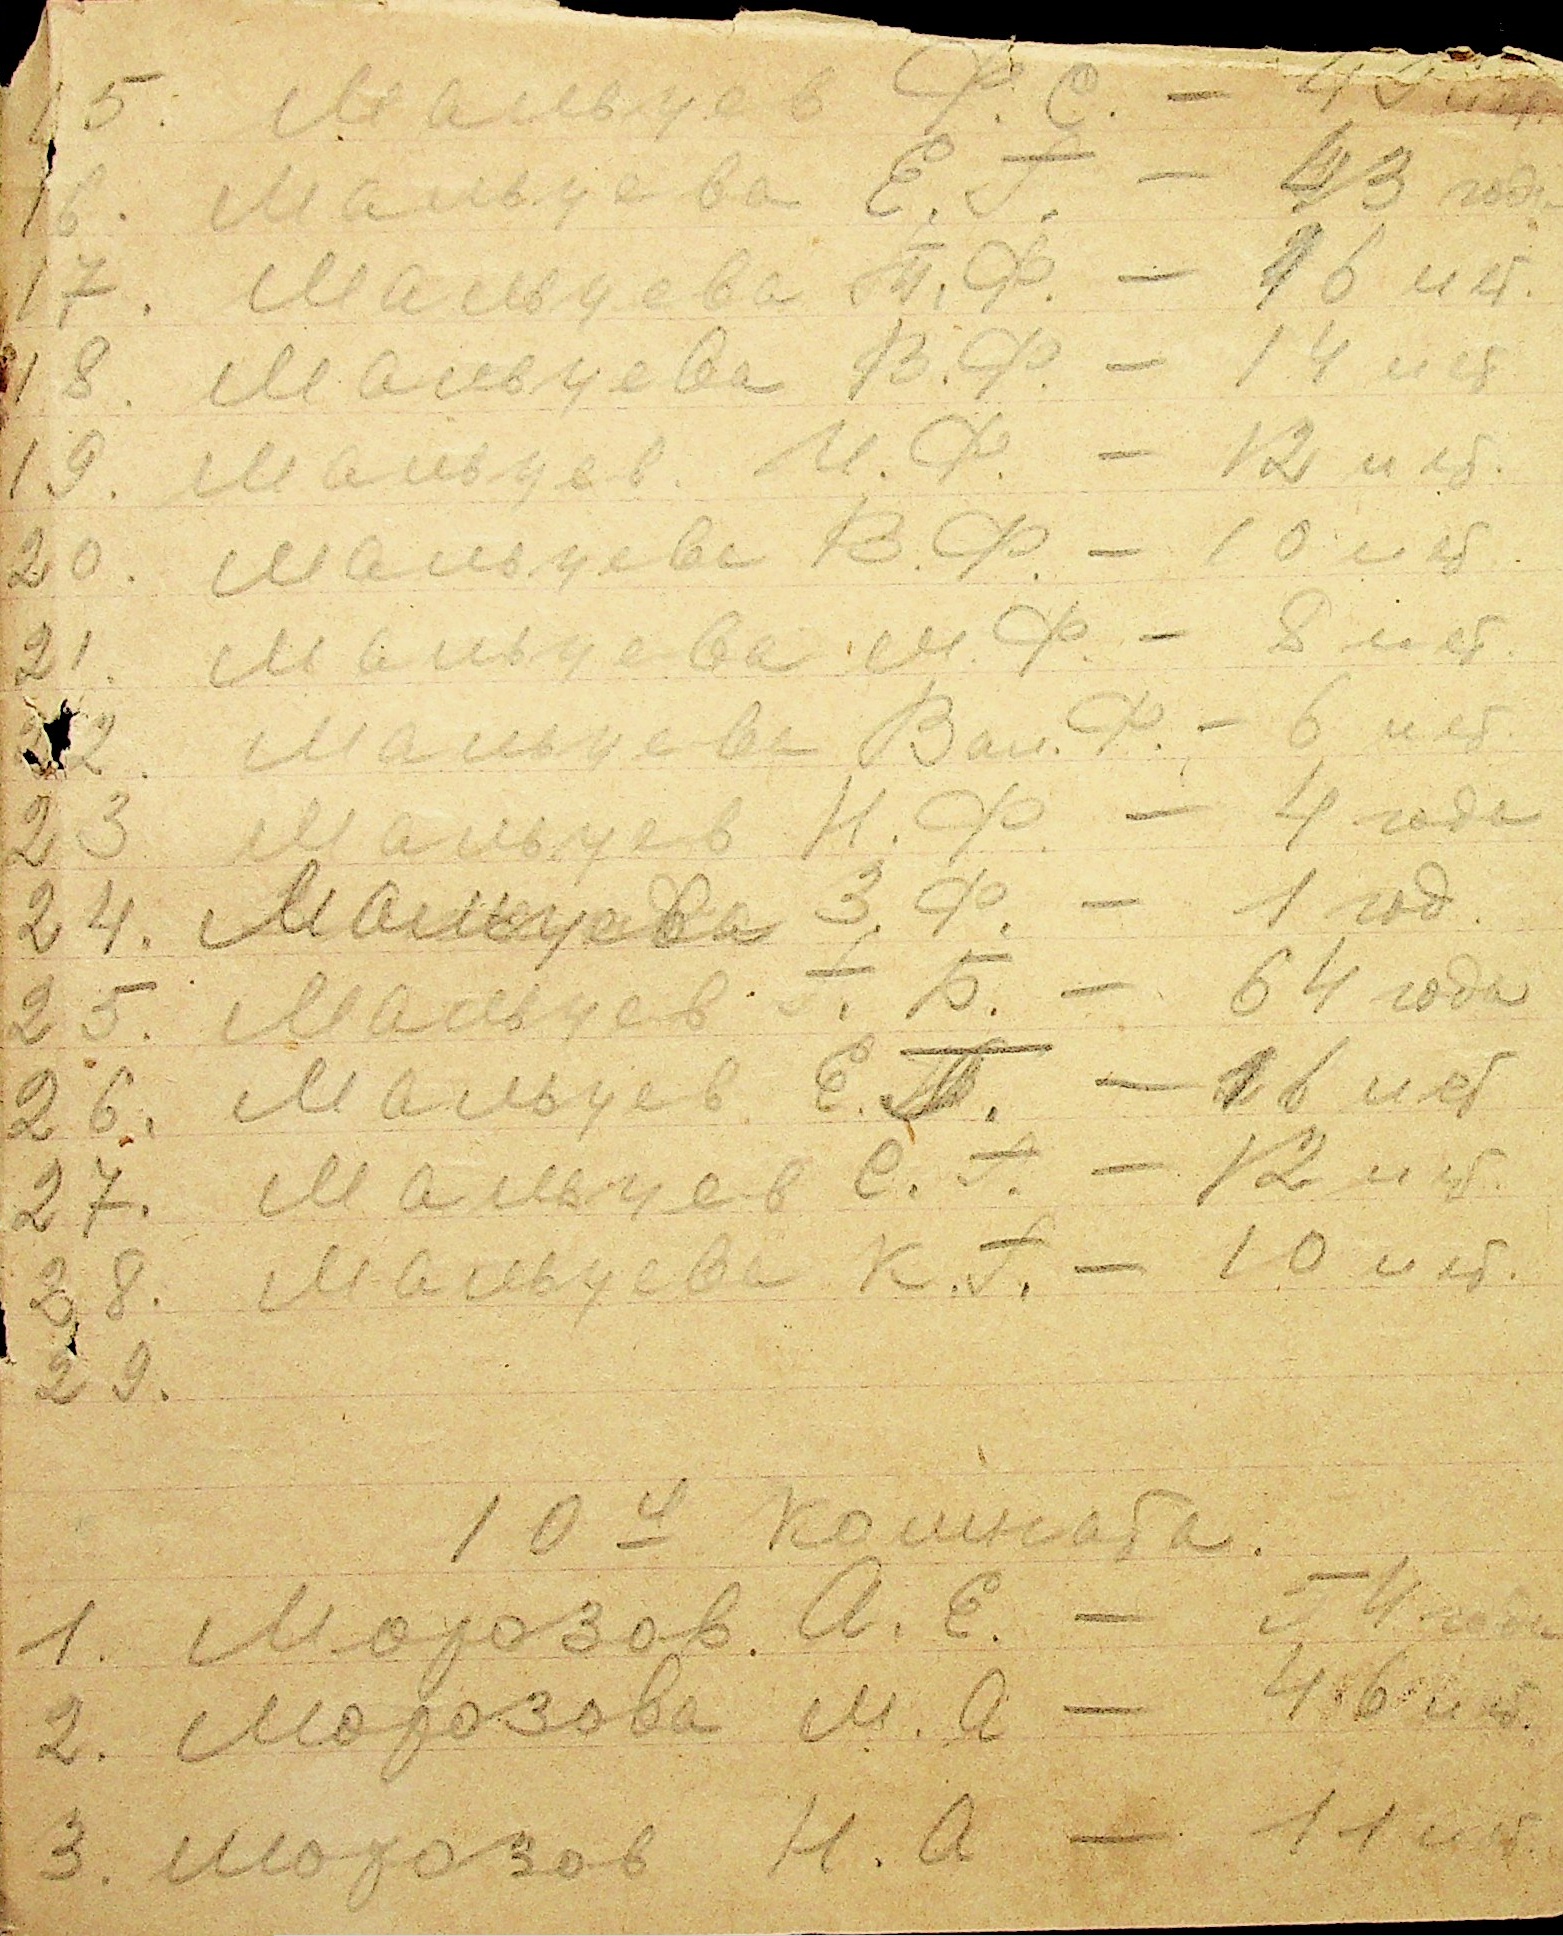 15. Мальцев Ф. С. — 45 лет
16. Мальцева Е. Г. — 43 года
17. Мальцева П. Ф. — 16 лет.
18. Мальцева В. Ф. — 14 лет
19. Мальцев. И. Ф. — 12 лет.
20. Мальцева В. Ф. — 10 лет
21. Мальцева М. Ф. — 8 лет.
22. Мальцева Вал. Ф. — 6 лет.
23 Мальцев Н. Ф. — 4 года
24. Мальцева З. Ф. — 1 год.
25. Мальцев Г. Б. — 64 года
26. Мальцев Е. — 16 лет
27. Мальцев С. Г. — 12 лет.
28. Мальцева К. Г. — 10 лет.
29.
10й комната.
1. Морозов. А. Е. — 54 года
2. Морозова М. А — 46 лет.
3. Морозов Н. А — 11 лет.